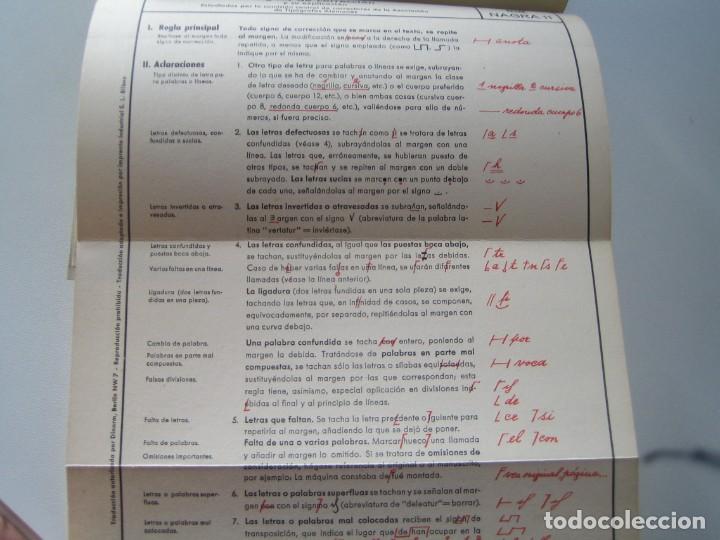 y su explicación
Estudiados por la comisión central de correctores de la Asociación
de Tipógrafos Alemanes
NAGRA 11
I. Regla principal
Escríbase al margen todo
signo de corrección.
Todo signo de corrección que se marca en el texto, se repite
al margen. La modificación se pony a la derecha de la llamada
repetida, a menos que el signo empleado (como ) la
indique por sí misma.
anota
II. Aclaraciones
Tipo distinto de letra pa-
ra palabras o líneas.
1. Otro tipo de letra para palabras o líneas se exige, subrayan-
do lo que se ha de cambiar y anotando al margen la clase
de letra deseada (negrilla, cursiva, etc.) o el cuerpo preferido
(cuerpo 6, cuerpo 12, etc.), o bien ambas cosas (cursiva cuer-
po 8, redonda cuerpo 6, etc.), valiéndose para ello de núme-
ros, si fuera preciso.
1 negrilla 2 cursiva
redonda cuerpo 6
Letras defectuosas, con-
fundidas o sucias.
2. Las letras defectuosas se tachan como si se tratara de letras
confundidas (véase 4), subrayándolas al margen con una
línea. Las letras que, erróneamente, se hubieran puesto de
otros tipos, se tachan y se repiten al margen con un doble
subrayado. Las letras sucias se marcan con un punto debajo
de cada una, señalándolas al margen por el signo
a s
h
Letras invertidas o atra-
vesadas.
3. Las letras invertidas o atravesadas se subrayan, señalándo-
las al margen con el signo V (abreviatura de la palabra la-
tina "vertatur" = inviértase).
V
V
Letras confundidas y
puestas boca abajo.
Varias faltas en una línea.
4. Las letras confundidas, al igual que las puestas boca abajo,
se tachan, sustituyéndolas al margen por las debidas.
Caso de haber varias faltas en una línea, se usarán diferentes
llamadas (véase la línea anterior).
te
Ligadura (dos letras fun-
didas en una pieza).
La ligadura (dos letras fundidas en una sola pieza) se exige,
tachando las letras que, en infinidad de casos, se componen,
equivocadamente, por separado, repitiéndolas al margen con
una curva debajo.
Cambio de palabra.
Palabras en parte mal
compuestas.
Falsas divisiones.
Una palabra confundida se tacha por entero, poniendo al
margen la debida. Tratándose de palabras en parte mal
compuestas, se tachan sólo las letras o sílabas equivocadas,
sustituyéndolas al margen por las que correspondan; esta
regla tiene, asimismo, especial aplicación en divisiones in-
debidas al final y al principio de líneas.
por
voca
de
Falta de letras.
5. Letras que faltan. Se tacha la letra precedente o siguiente para
repetirla al margen, añadiendo la que se dejó de poner.
ce si
Falta de palabras.
Omisiones importantes.
Falta de una o varias palabras. Marcar hueco una llamada
y añadir al margen. Si se tratara de omisiones de
consideración, hágase referencia al original o al manuscrito,
por ejemplo: La máquina constaba de fué montada.
el con
vea original página...
Letras o palabras super-
fluas.
6. Las letras o palabras superfluas se tachan y se señalan al mar-
gen con el signo (abreviatura de "deleatur" = borrar).
Letras o palabras mal
colocadas.
7. Las letras o palabras mal colocadas reciben el signo de
transposición, que indica el lugar que han de ocupar en la
Traducción autorizada por Dinorm, Berlín NW 7 - Reproducción prohibida - Traducción adaptada e impresión por Imprenta Industrial S. L. Bilbao
todocoleccion